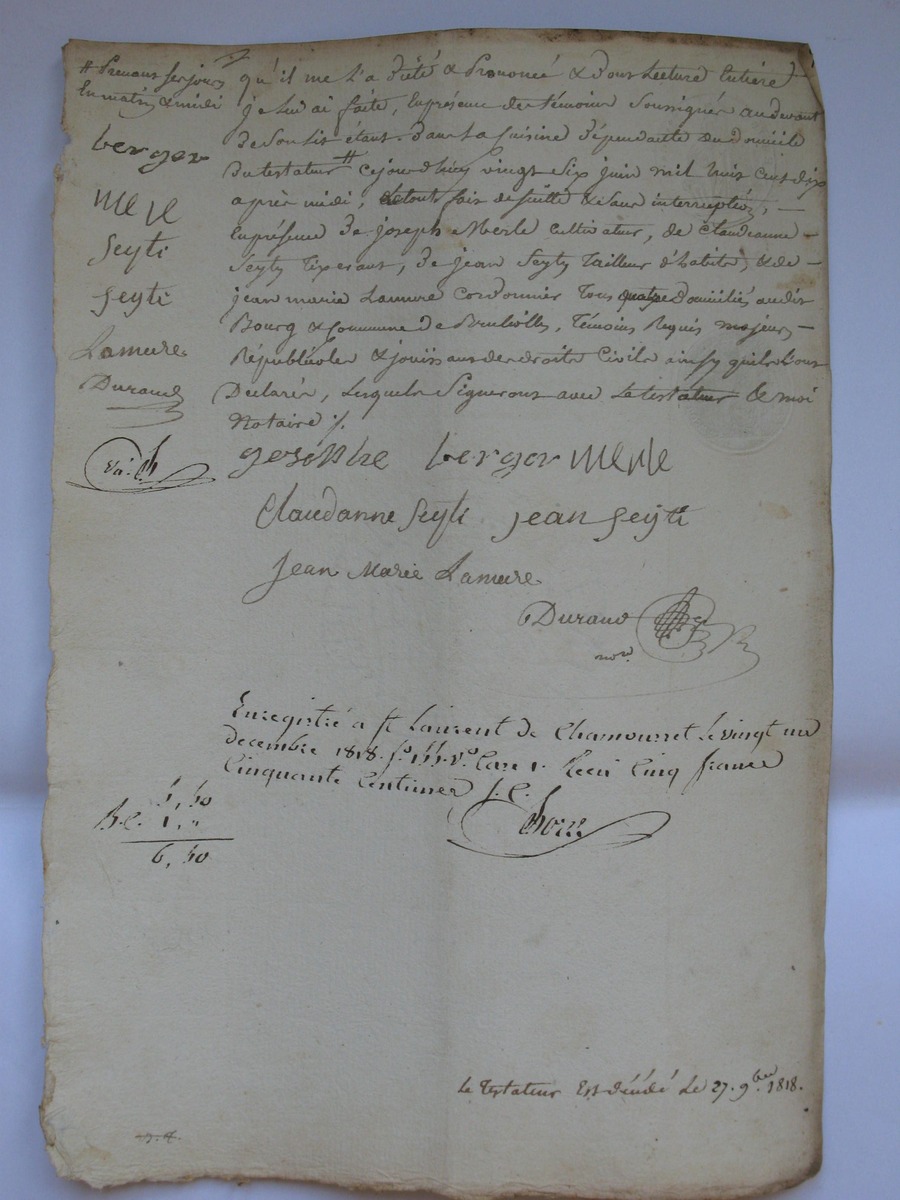 # Prenant ses jours
En matin & midi
berger
merle
Seyti
Seyti
Lamure
Durand
qu'il me l'a dicté & Prononcé & dont Lecture Entière
je lui ai faite, En présence des témoins soussignés au devant
de son lit étant dans la Cuisine dépendante du Domicile
du testateur # cejourd'huy vingt Six juin mil huit Cent dix
après midi, Le tout fait de suitte & sans interruption, —
En présence de joseph Merle Cultivateur, de Claudeanne —
Seyty Tixerant, de jean Seyty Tailleur d'habits, & de —
jean marie Lamure Cordonnier Tous quatre domiciliés audit
Bourg & Commune de Témoins Requis majeurs —
Républicoles & jouissant des droits Civils ainsy qu'ils l'ont
Déclaré, Lesquels Signeront avec Le testateur & moi
Notaire ./.
berger merle
Claudanne Seyti jean Seyti
Jean Marie Lamure
Durand
nore.
Enregistré a St Laurent de Chamousset le vingt un
decembre 1818. fo. 155. vo. Case 1. Recu Cinq francs
Cinquante Centimes S. C.
5, 50
S.C. 1, "
6, 50
Le Testateur Est décédé Le 27. 9bre 1818.